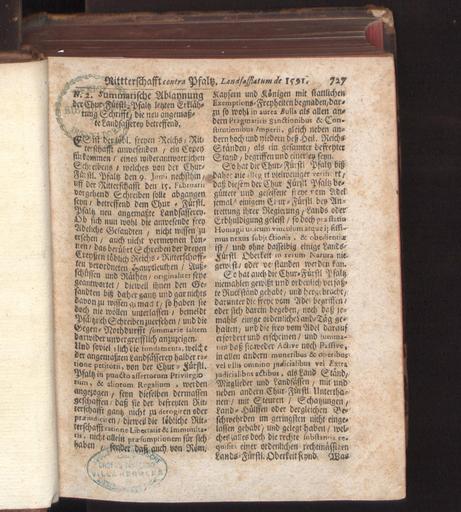 Ritterschafft contra Pfaltz, Landsassiatum de 1591. 727
N. 2. Summarische Ablaynung
der Chur-Fürstl. Pfaltz letzten Erkläh-
rung Schrifft, die neu angemaß-
te Landsasserey betreffend.
ES ist der löbl. freyen Reichs-Rit-
terschafft anwesenden ein Copey
zukommen / eines widerantwortlichen
Schreibens / welches von der Chur-
Fürstl. Pfaltz den 9. Junii nechsthin
uff der Ritterschafft den 15. Februarii
vorgehend Schreiben solle abgangen
seyn / betreffend dem Chur-Fürstl.
Pfaltz neu angemaßte Landsasserey.
Ob sich nun wohl die anwesende freye
Adeliche Gesandten / nicht wissen zu
ersehen / auch nicht vermeynen kön-
nen / das berührt Schreiben der dreyen
Creyßen löblich Reichs-Ritterschaff-
ten verordneten Hauptleuthen / Auß-
schüssen und Räthen / originaliter seye
geantwortet / dieweil ihnen den Ge-
sandten biß daher gantz und gar nichts
davon zu wissen gemacht / so haben sie
doch nie wollen unterlassen / bemeldt
Pfältzich Schreiben zuersehen / und die
Gegen-Nothdurfft summarie saltem
darwider unvergreifflich anzuzeigen.
Und soviel sich die fundamenta, welche
der angemaßten Landsasserey halber ra-
tione petitorii, von der Chur-Fürstl.
Pfaltz in puncto assertorum Privilegio-
rum, & aliorum Regalium, werden
angezogen / seyn dieselben dermassen
geschaffen / daß sie der befreyten Rit-
terschafft gantz nicht zu derogiren oder
præjudiciren / dieweil die löbliche Rit-
terschafft ratione Libertatis & Immunita-
tis, nicht allein præsumptionem für sich
haben / sonder daß auch von Röm.
Kaysern und Königen mit stattlichen
Exemptions-Freyheiten begnadet / dar-
zu so wohl in aurea Bulla als allen an-
dern Pragmaticis Sanctionibus & Con-
stitutionibus Imperii, gleich neben an-
dern hoch und niedern deß Heil. Reichs
Ständen / als ein gesambter befreyter
Stand / begriffen und einverleibt seyn.
So hat die Chur-Fürstl. Pfaltz biß
daher
daß diesem der Chur-Fürstl. Pfaltz be-
gütete und gesessene freye vom Adel
jemal / einigem Chur-Fürst. bey An-
trettung ihrer Regierung / Lands oder
Erbhuldigung geleist / so doch præstatio
Homagii unicum vinculum atque
mus nexus subjectionis, & obedientiæ
ist / und ohne dasselbig einige Lands-
Fürstl. Oberkeit in rerum Natura nie
gewest / oder verstanden werden kan.
So hat auch die Chur-Fürstl. Pfaltz
niemahlen gewisß und ordentlich verfaß-
te Ruckstand gehabt / und hergebracht /
darunter die freye vom Adel begriffen /
oder sich darein begeben, noch daß je-
mahls einige ordentliche Land-Täg ge-
halten, und die freye vom Adel darauf
erfordert und erschienen / und summa-
rum daß sie weder Active noch Passive,
in allen andern muneribus & oneribus
vel ullis omnino judicialibus vel Extra
judicialibus actibus, als Land-Ständ,
Mitglieder und Landsassen / mit und
neben andern Chur-Fürstl. Untertha-
nen / mit Steuren / Schatzungen /
Land-Hülffen oder dergleichen Be-
schwehrden im geringsten nicht einge-
lassen gehabt / und gelegt haben / wel-
ches alles doch die rechte substantia re-
quisita einer ordentlichen rechtmässigen
Lands-Fürstl. Oberkeit seynd. Was